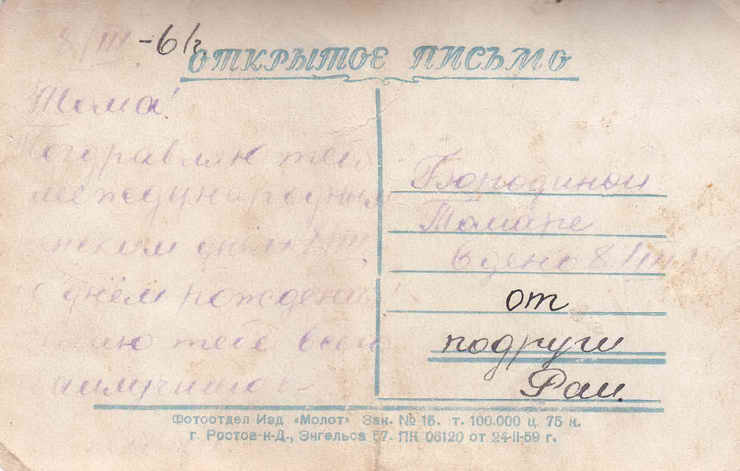 8/III-61г
ОТКРЫТОЕ ПИСЬМО
Тома!
Поздравляю тебя
международным
женским днём 8/III
с днём рождения!
желаю тебе всего
наилучшего.
Бородиной
Тамаре
в день 8/III
от
подруги
Раи.
Фотоотдел Изд «Молот» Зак. № 15. т. 100.000 ц. 75 к.
г. Ростов-н-Д., Энгельса 57. ПК 06120 от 24-II-59 г.